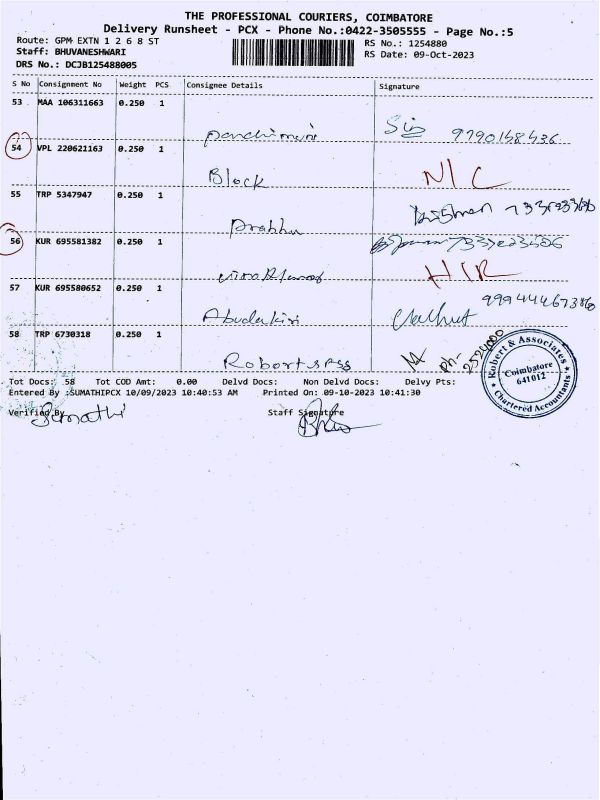 THE PROFESSIONAL COURIERS, COIMBATORE
Delivery Runsheet - PCX - Phone No.:0422-3505555 - Page No.:5
Route: GPM EXTN 1 2 6 8 ST
RS No.: 1254880
Staff: BHUVANESHWARI
RS Date: 09-Oct-2023
DRS No.: DCJB125488005
S No Consignment No Weight PCS Consignee Details Signature
53 MAA 106311663 0.250 1
9790148436
54 VPL 220621163 0.250 1
Block N/C
55 TRP 5347947 0.250 1
Prabhu
56 KUR 695581382 0.250 1
57 KUR 695580652 0.250 1
58 TRP 6730318 0.250 1
ph- 2524000
Robert & Associates
Coimbatore
641012
Chartered Accountants
Tot Docs: 58 Tot COD Amt: 0.00 Delvd Docs: Non Delvd Docs: Delvy Pts:
Entered By :SUMATHIPCX 10/09/2023 10:40:53 AM Printed On: 09-10-2023 10:41:30
Verified By Staff Signature